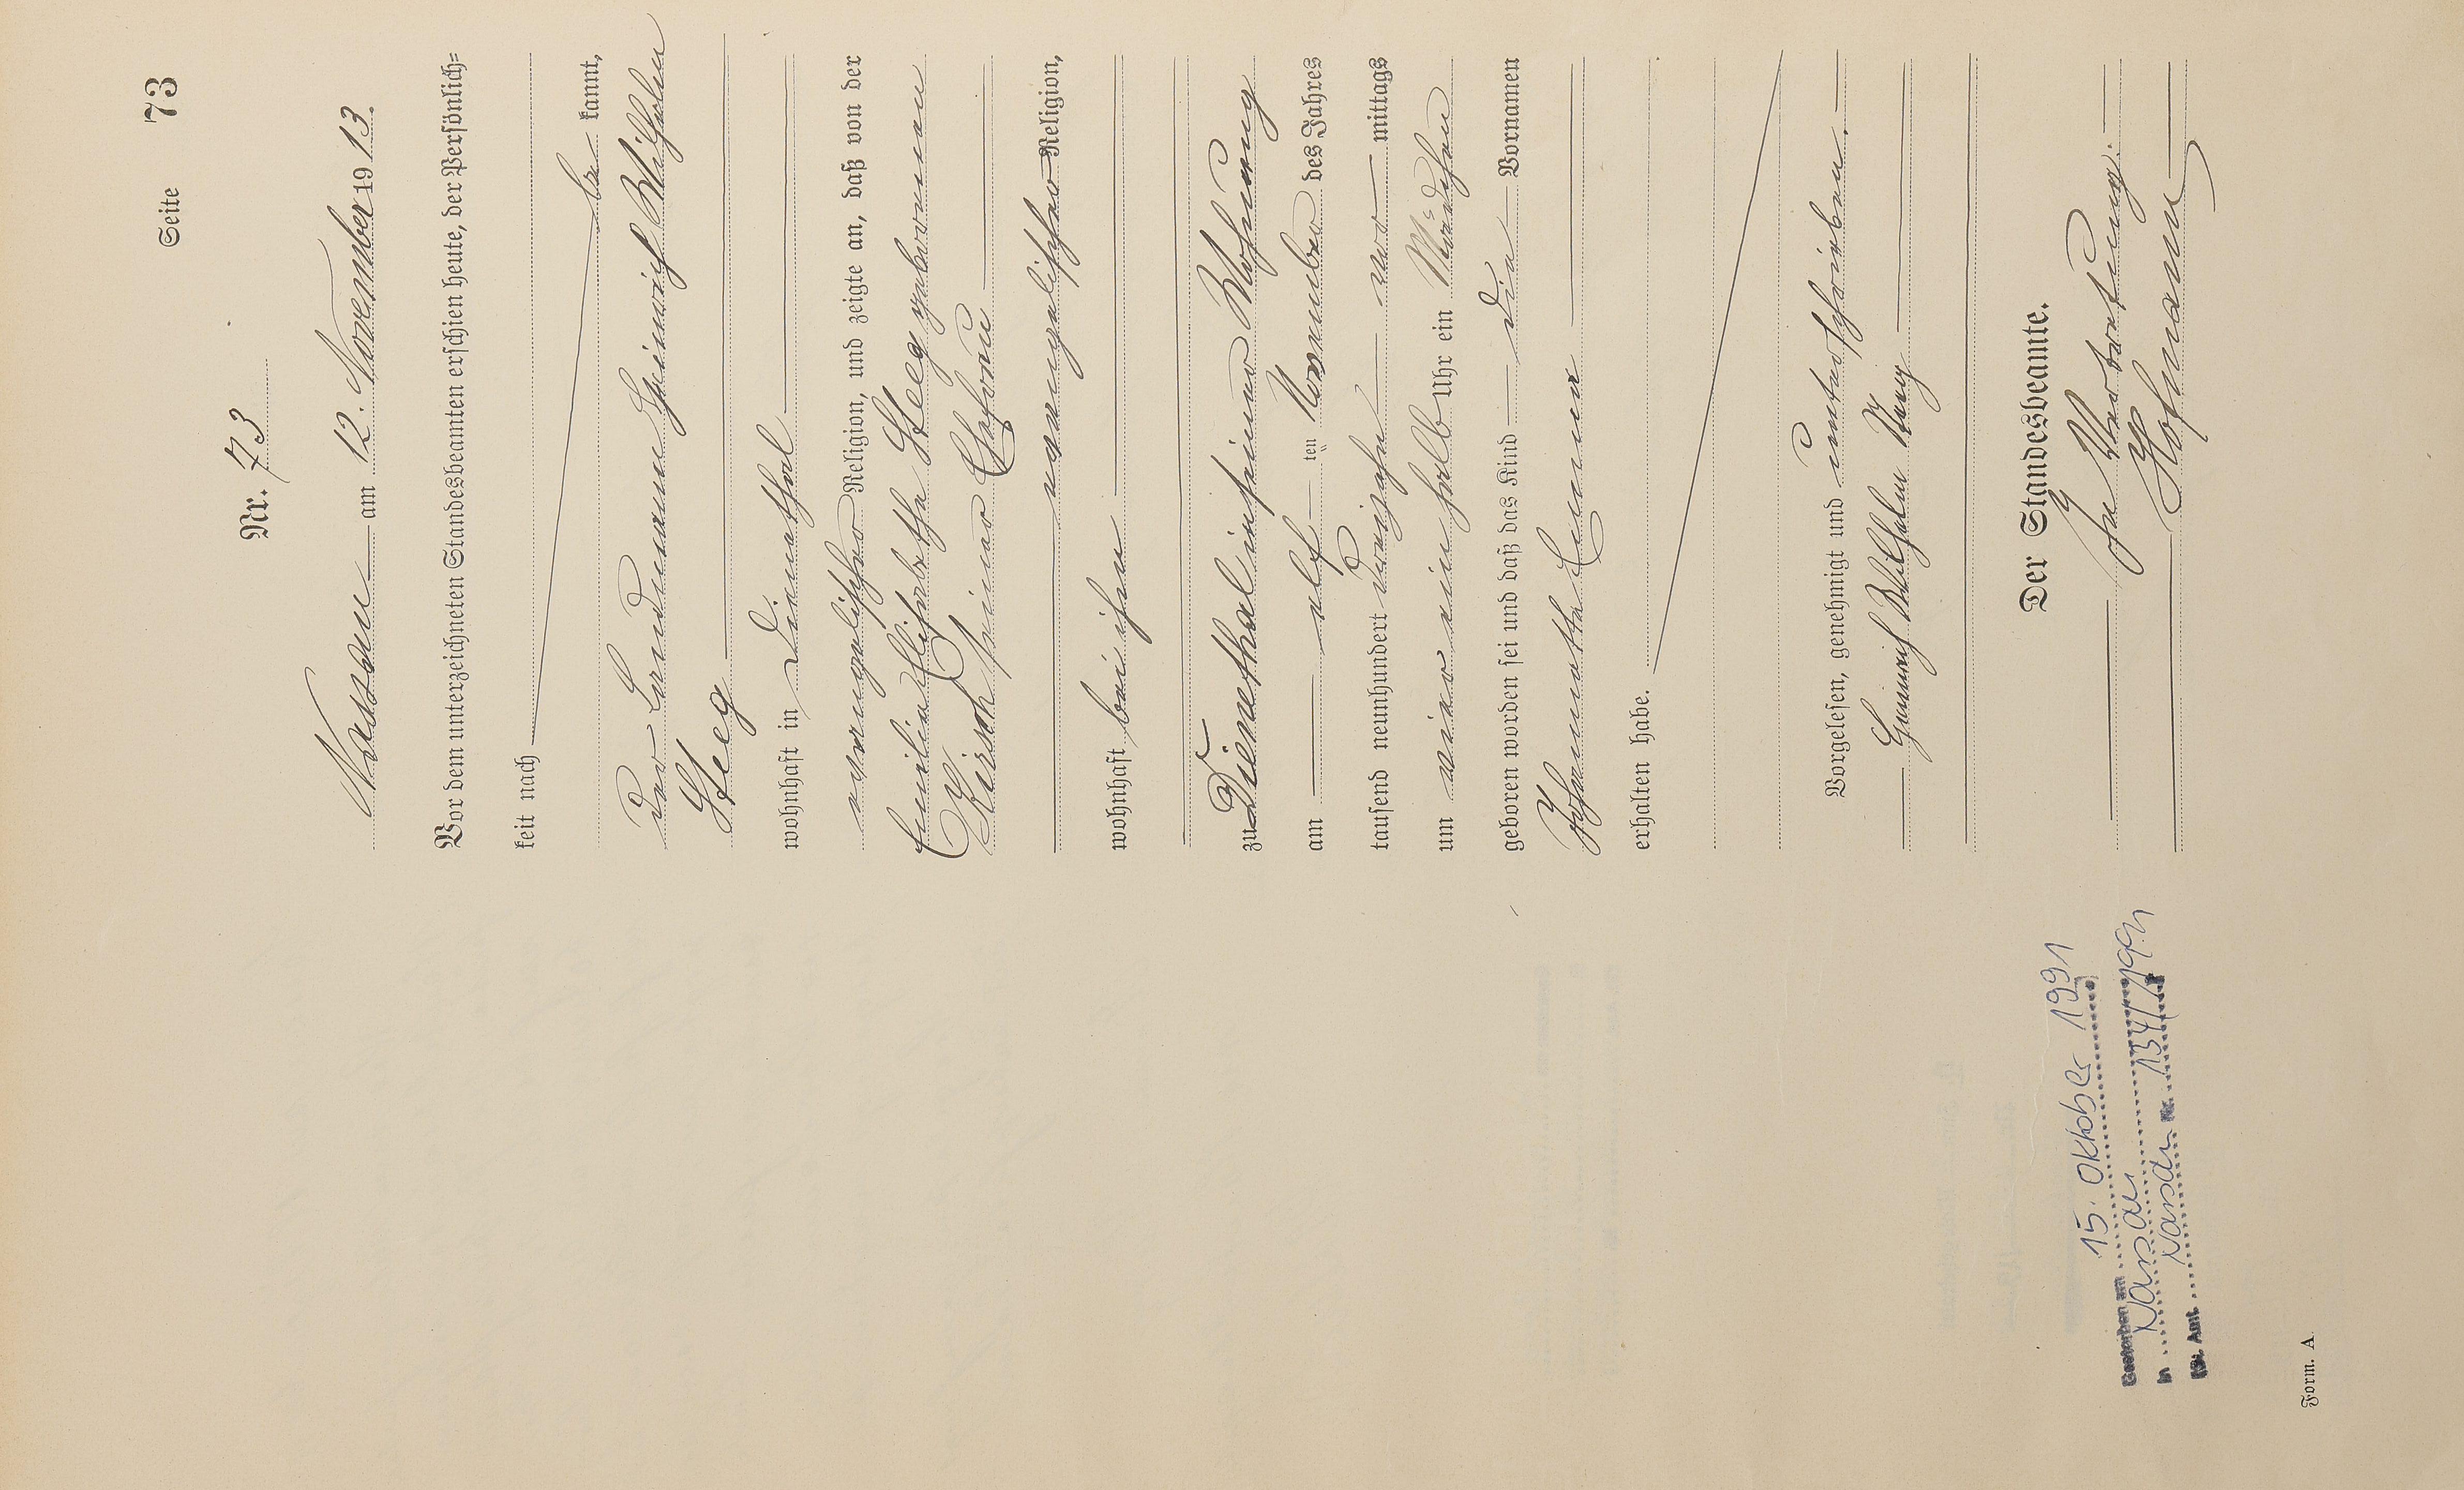 Seite 73
Nr. 73
Nassau am 12. November 1913.
Vor dem unterzeichneten Standesbeamten erschien heute, der Persönlich=
keit nach
be kannt,
der Landmann Heinrich Wilhelm
Steeg
wohnhaft in Dienethal
evangelischer Religion, und zeigte an, daß von der
Emilie Elisabetha Steeg geborenen
Kirsch seiner Ehefrau
evangelischer Religion,
wohnhaft bei ihm
zu Dienethal in seiner Wohnung
am elf ten November des Jahres
tausend neunhundert dreizehn vor mittags
um vier ein halb Uhr ein Mädchen
geboren worden sei und daß das Kind die Vornamen
Johannette Emma
erhalten habe.
Vorgelesen, genehmigt und unterschrieben.
Heinrich Wilhelm Steeg
Der Standesbeamte.
In Vertretung:
Hofmann
Gestorben am 15. Oktober 1991
in Nassau
St. Amt Nassau Nr. 134/1991
Form. A